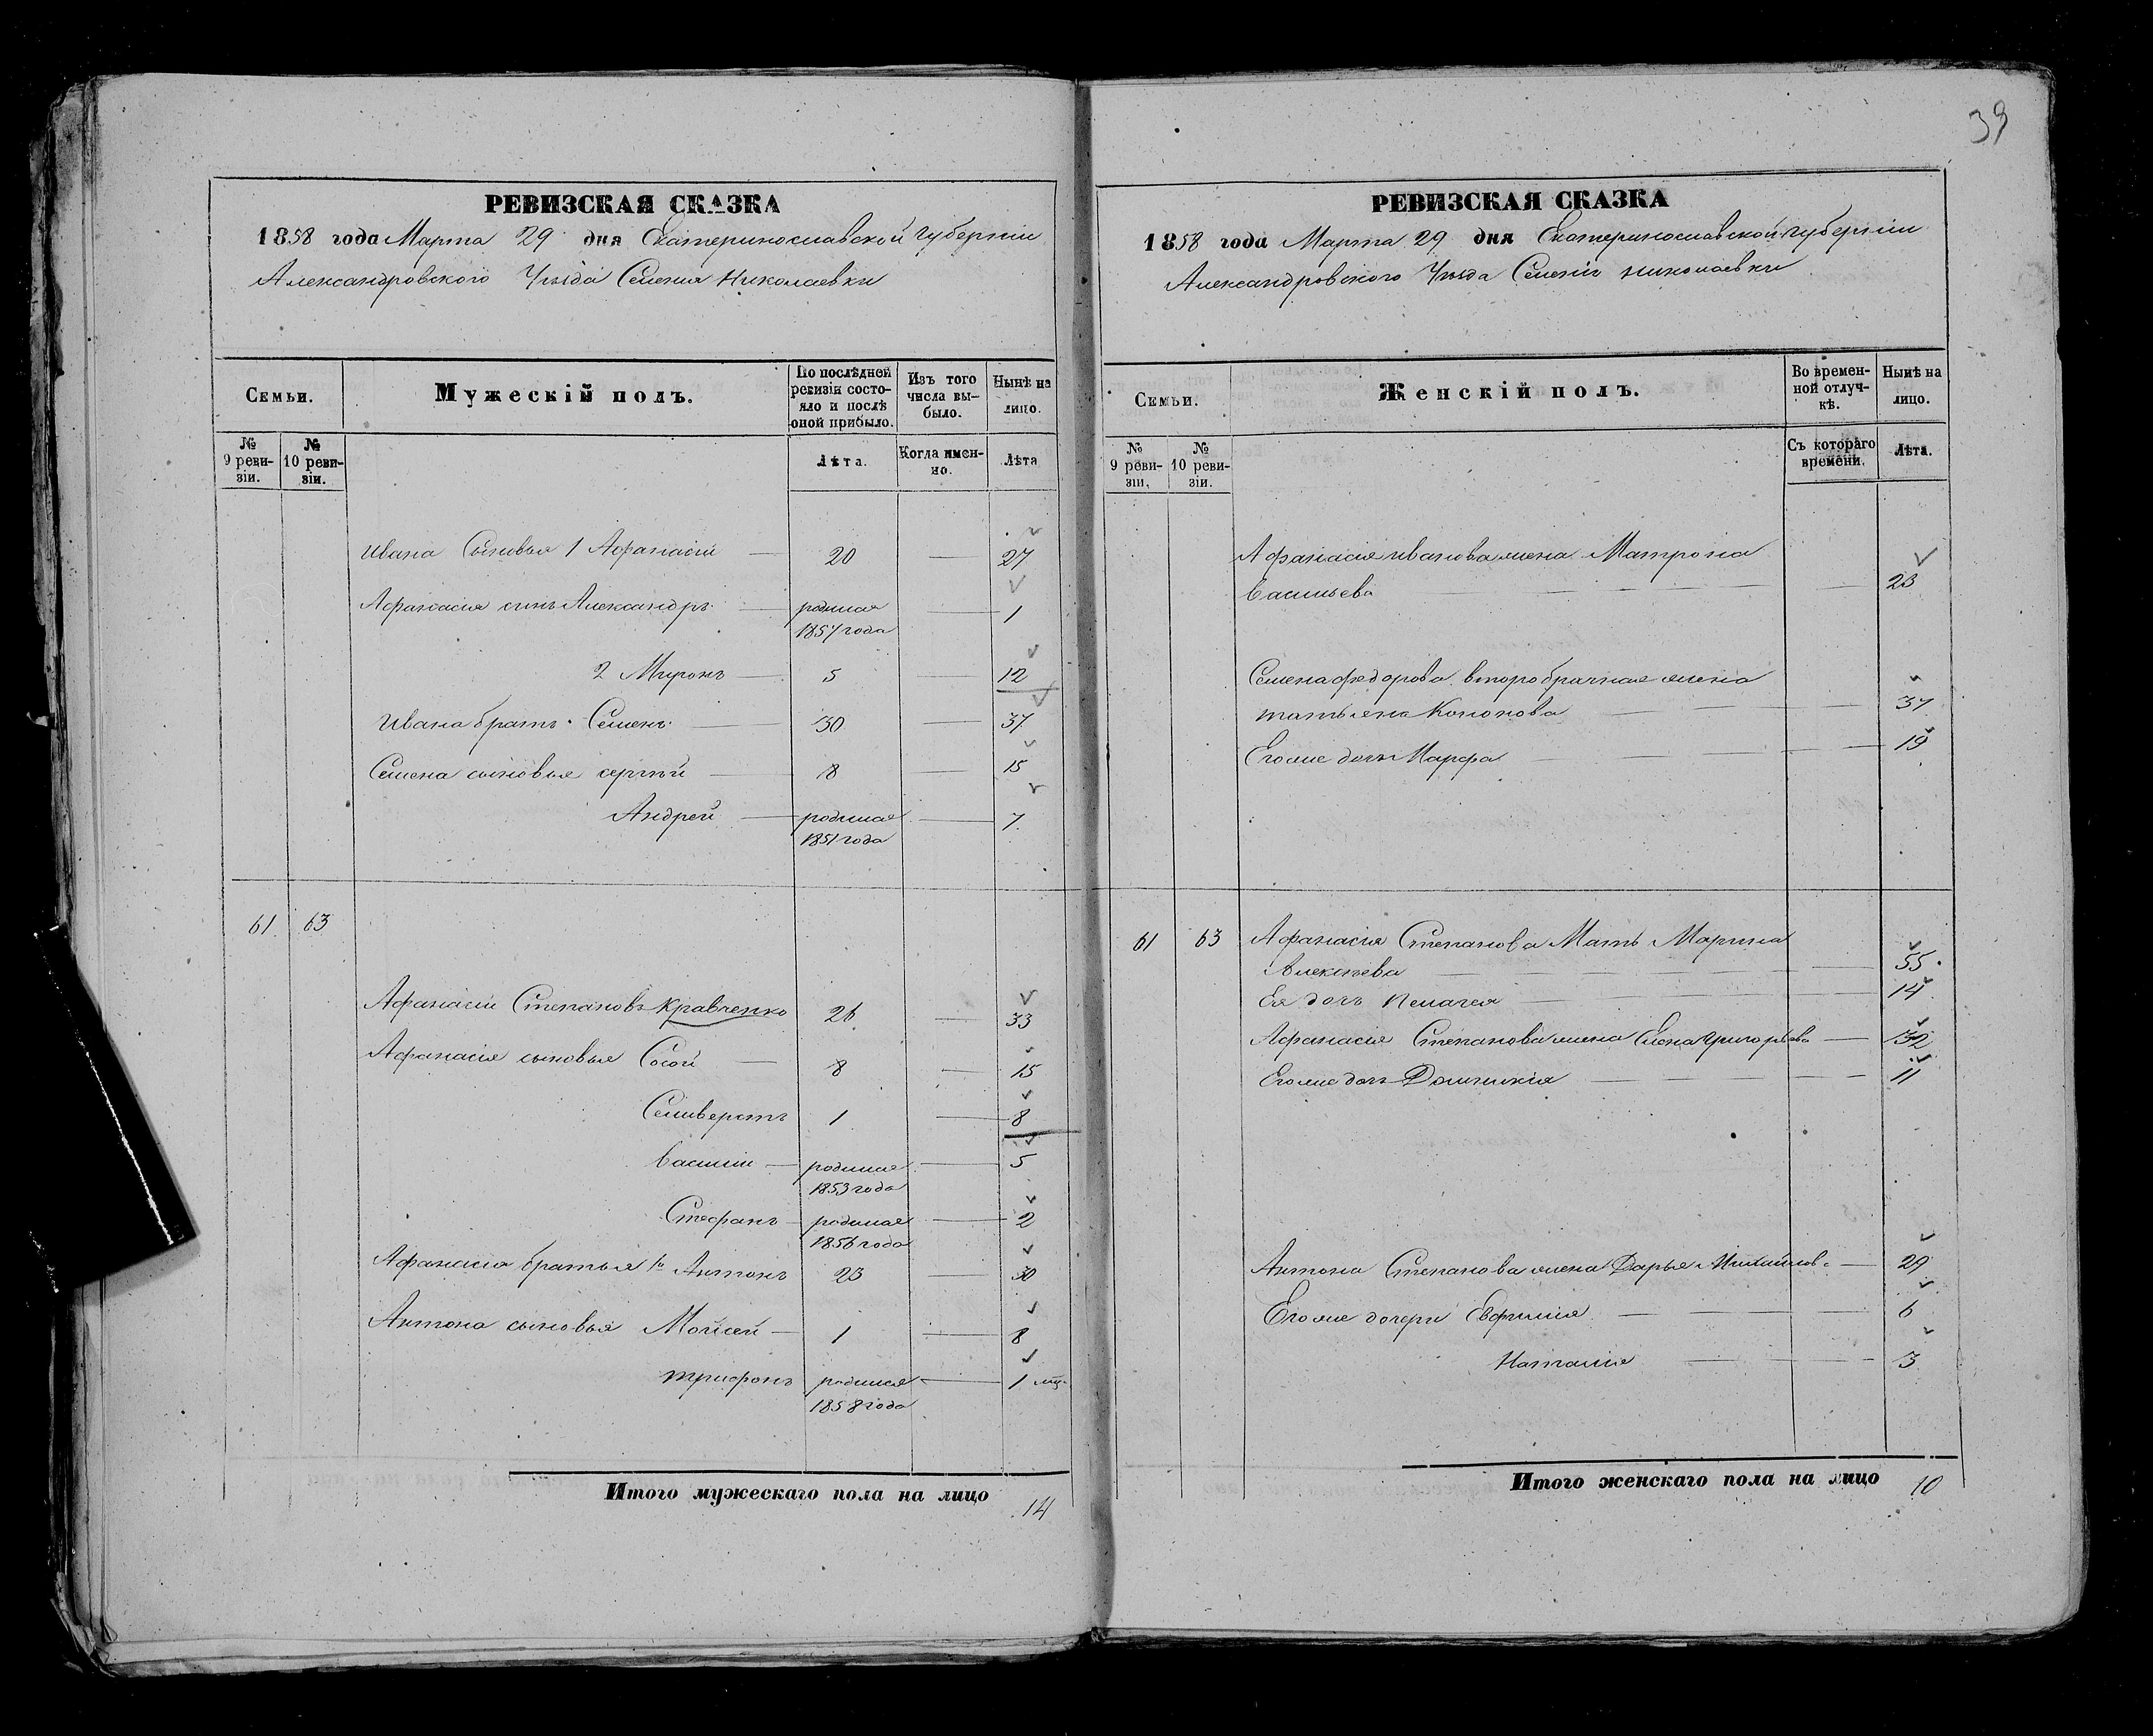 39
РЕВИЗСКАЯ СКАЗКА
1858 года Марта 29 дня Екатеринославской Губерніи
Александровского Уѣзда Селенія Николаевки
Семьи.
Мужескій полъ.
По послѣдней ревизіи состояло и послѣ оной прибыло.
Изъ того числа выбыло.
Нынѣ на лицо.
№ 9 ревизіи.
№ 10 ревизіи.
Лѣта.
Когда именно.
Лѣта
Ивана Сыновья 1 Афанасій — 20 — 27
Афанасія сынъ Александръ — родился 1857 года — 1
2 Миронъ — 5 — 12
Ивана братъ Семенъ — 30 — 37
Семена сыновья сергѣй — 8 — 15
Андрей — родился 1851 года — 7
61 63
Афанасій Степановъ Кравченко 26 — 33
Афанасія сыновья — 8 — 15
Селиверстъ 1 — 8
Василій — родился 1853 года — 5
Стефанъ — родился 1856 года — 2
Афанасія братья 1й Антонъ 23 — 30
Антона сыновья Мойсей — 1 — 8
трифонъ родился 1858 года — 1 мц.
Итого мужескаго пола на лицо 14
РЕВИЗСКАЯ СКАЗКА
1858 года Марта 29 дня Екатеринославской губерніи
Александровского Уѣзда Селенія николаевки
Семьи.
Женскій полъ.
Во временной отлучкѣ.
Нынѣ на лицо.
№ 9 ревизіи.
№ 10 ревизіи.
Съ котораго времени.
Лѣта.
Афанасія иванова жена Матрона
Васильева — 23
Семена федорова второбрачная жена
татьяна Кононова — 37
Его же дочь Марфа — 19
61 63 Афанасія Степанова Мать Марина
Алексѣева — 55
Ея дочь Пелагея — 14
Афанасія Степанова жена Елена григорьева — 32
Его же дочь Домникія — 11
Антона Степанова жена Дарья Михайлов. — 29
Его же дочери Евфимія — 6
Наталія — 3
Итого женскаго пола на лицо 10